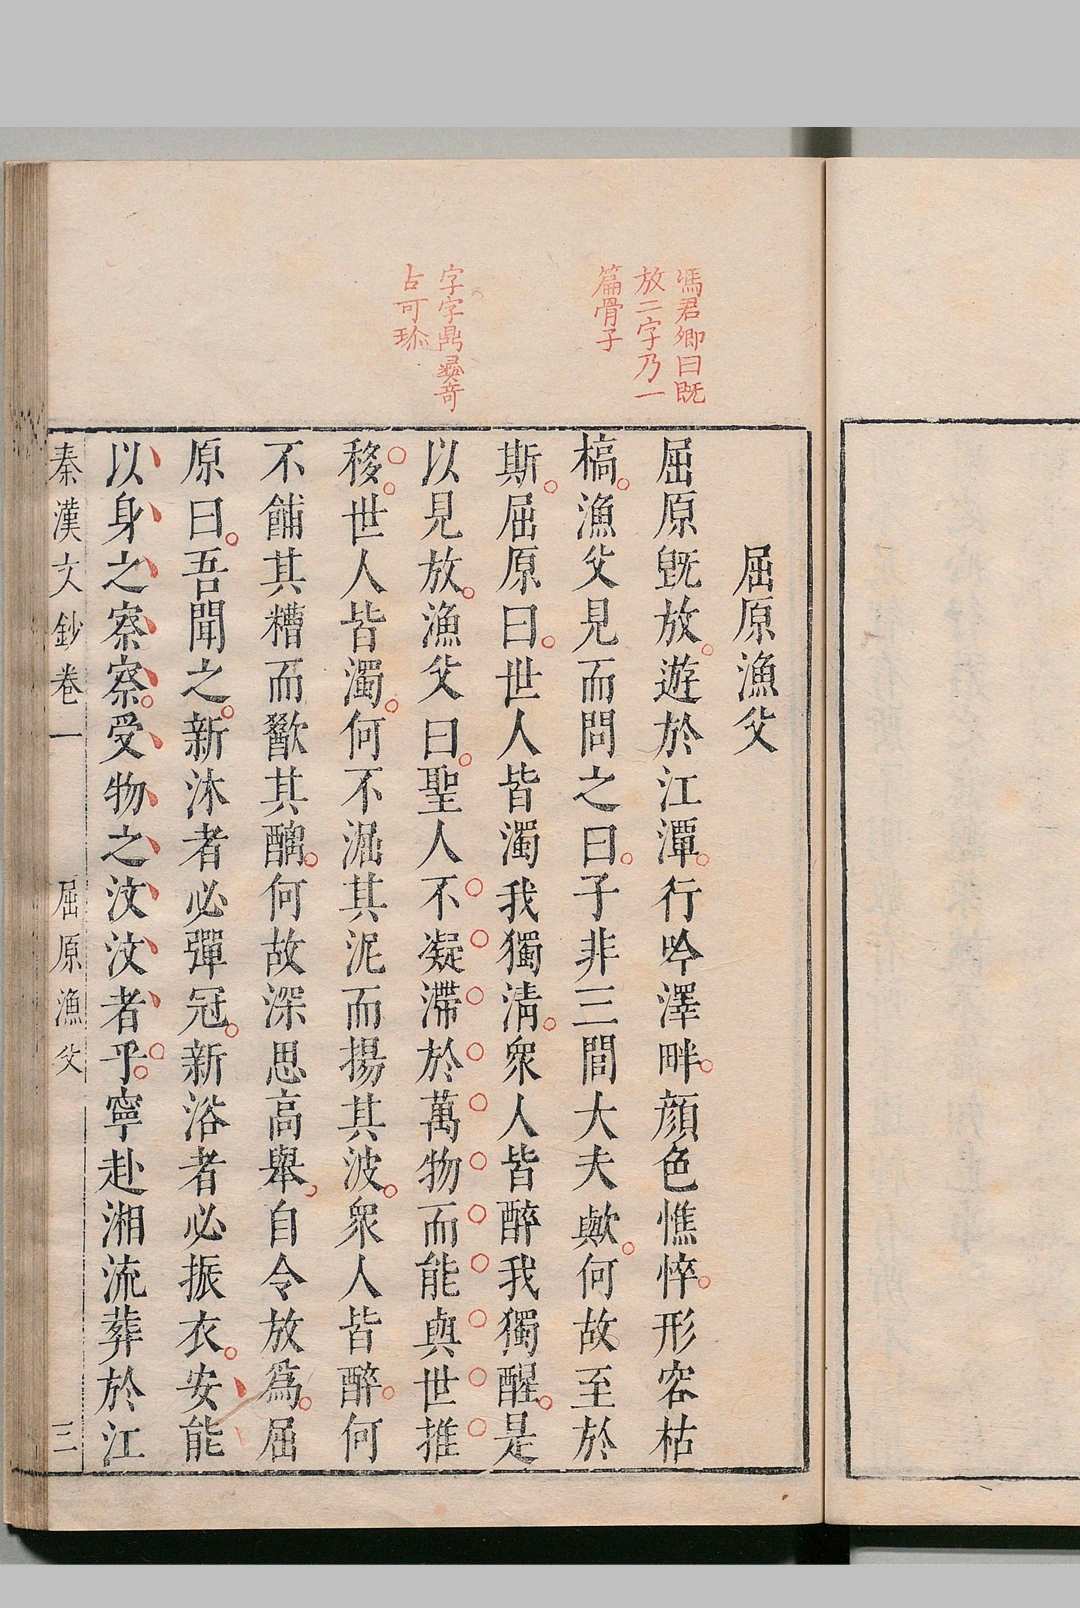 馮君卿曰既
放二字乃一
篇骨子
字字鼎彞奇
古可珎
屈原漁父
屈原旣放遊於江潭行吟澤畔顔色憔悴形容枯
槁漁父見而問之曰子非三閭大夫歟何故至於
斯屈原曰世人皆濁我獨淸衆人皆醉我獨醒是
以見放漁父曰聖人不凝滯於萬物而能與世推
移世人皆濁何不淈其泥而揚其波衆人皆醉何
不餔其糟而歠其醨何故深思高舉自令放爲屈
原曰吾聞之新沐者必彈冠新浴者必振衣安能
以身之察察受物之汶汶者乎寧赴湘流葬於江
秦漢文鈔卷一 屈原漁父 三